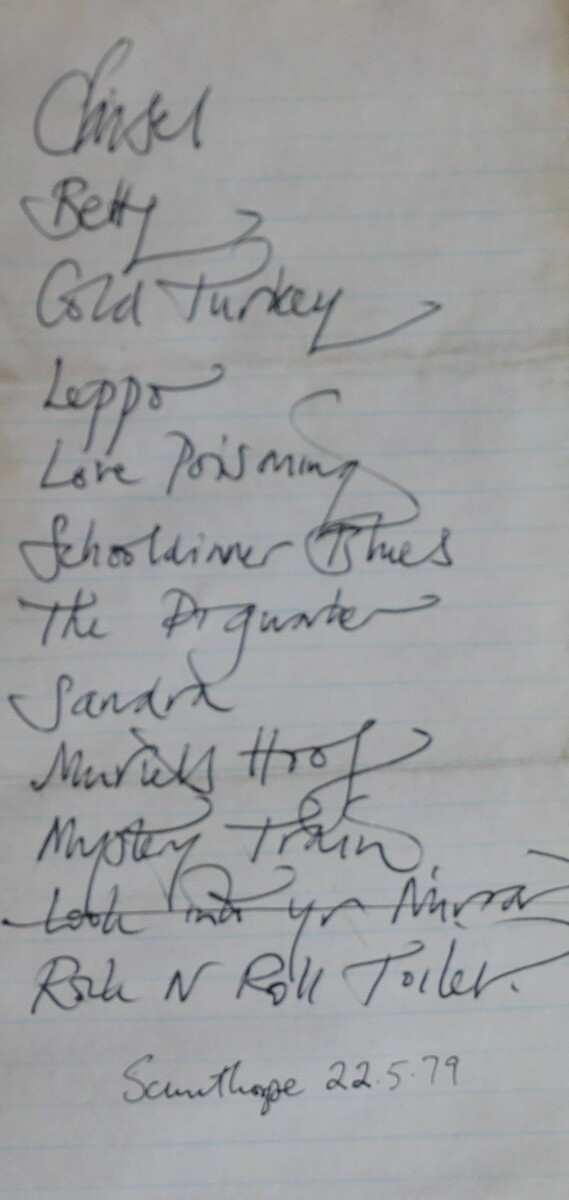 Chisel
Betty
Cold Turkey
Leppo
Love Poisoning
Schooldinner Blues
The Pigworker
Sandra
Muriels Hoof
Mystery Train
Look into yr Mirror
Rock N Roll Toilet.
Scunthorpe 22.5.79